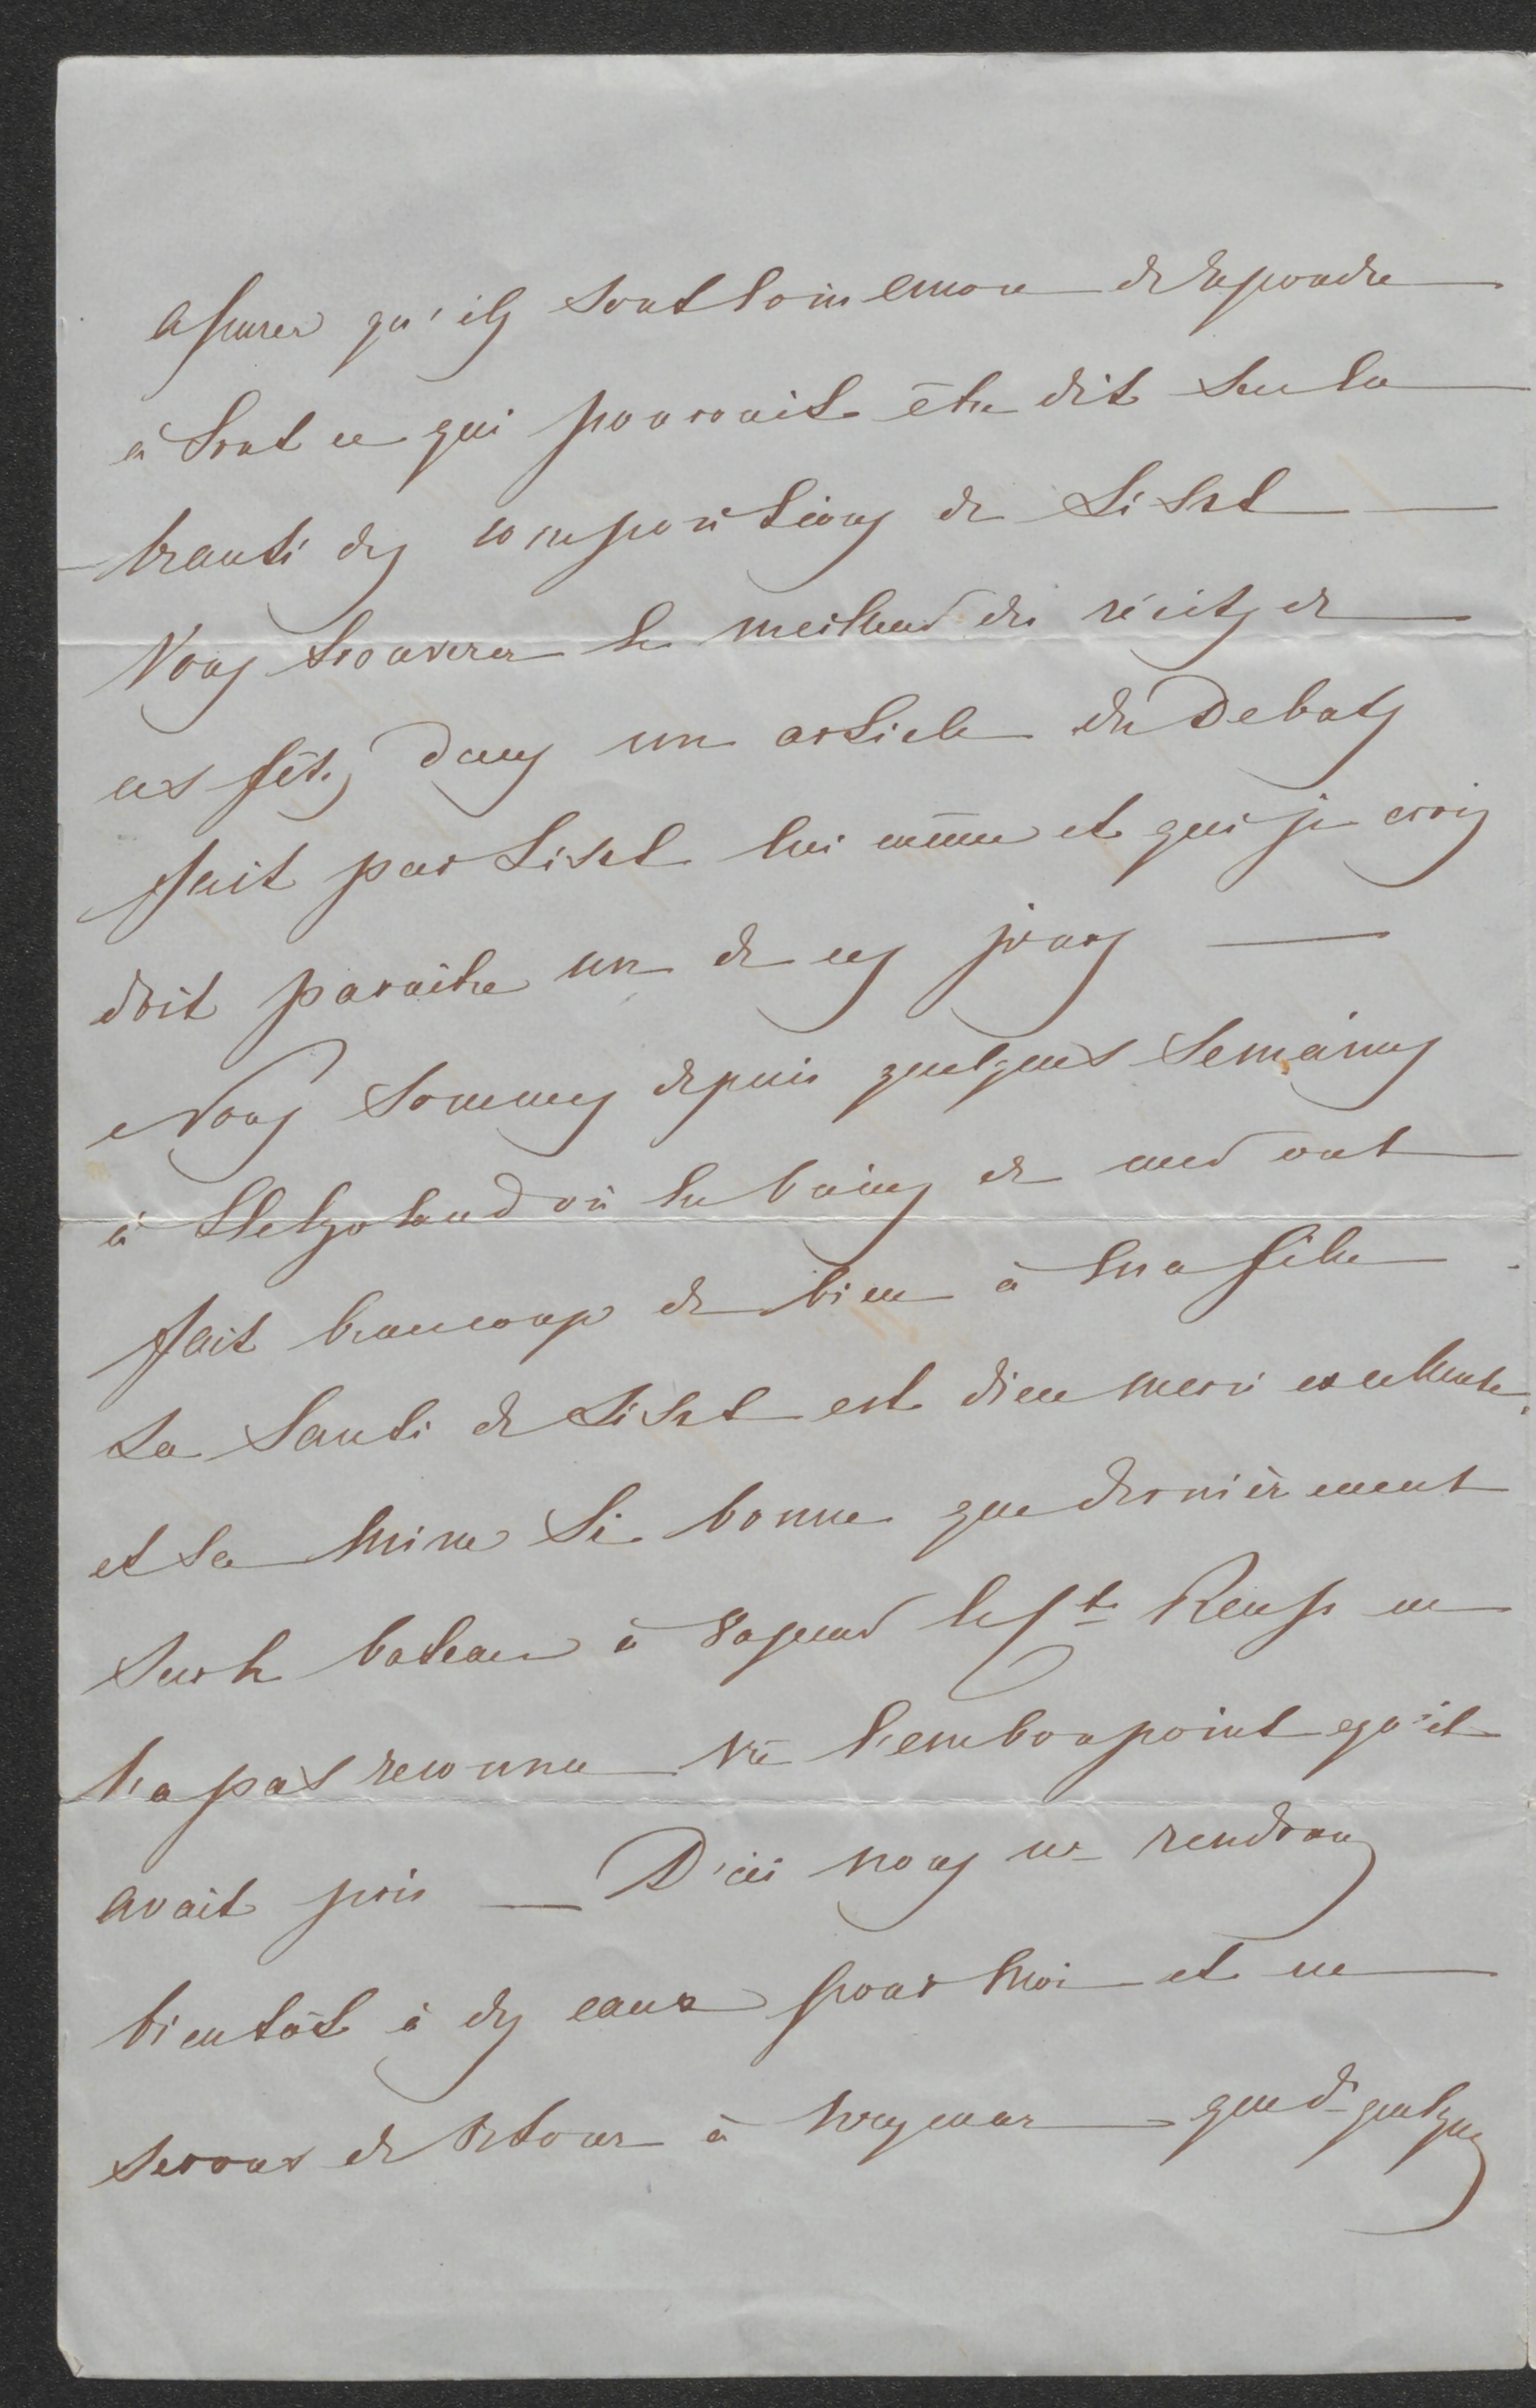 assurer qu'ils sont loin encore de repondre
à tout ce qui pourrait être dit sur la
beauté des compositions de Liszt —
Vous trouverez le meilleur des récits de
ces fêtes dans un article du Debats
fait par Liszt lui même et qui je crois
doit paraitre un de ces jours —
Nous sommes depuis quelques semaines
à Helgoland où les bains de mer ont
fait beaucoup de bien à ma fille.
La santé de Liszt est dieu merci excellente,
et sa mine si bonne que dernièrement
sur le bateau à vapeur le Reuss ne
l'a pas reconnu vû l'embonpoint qu'il
avait pris — D'ici nous ns rendrons
bientôt à des eaux pour moi et ne
serons de retour à Weymar que ds quelques